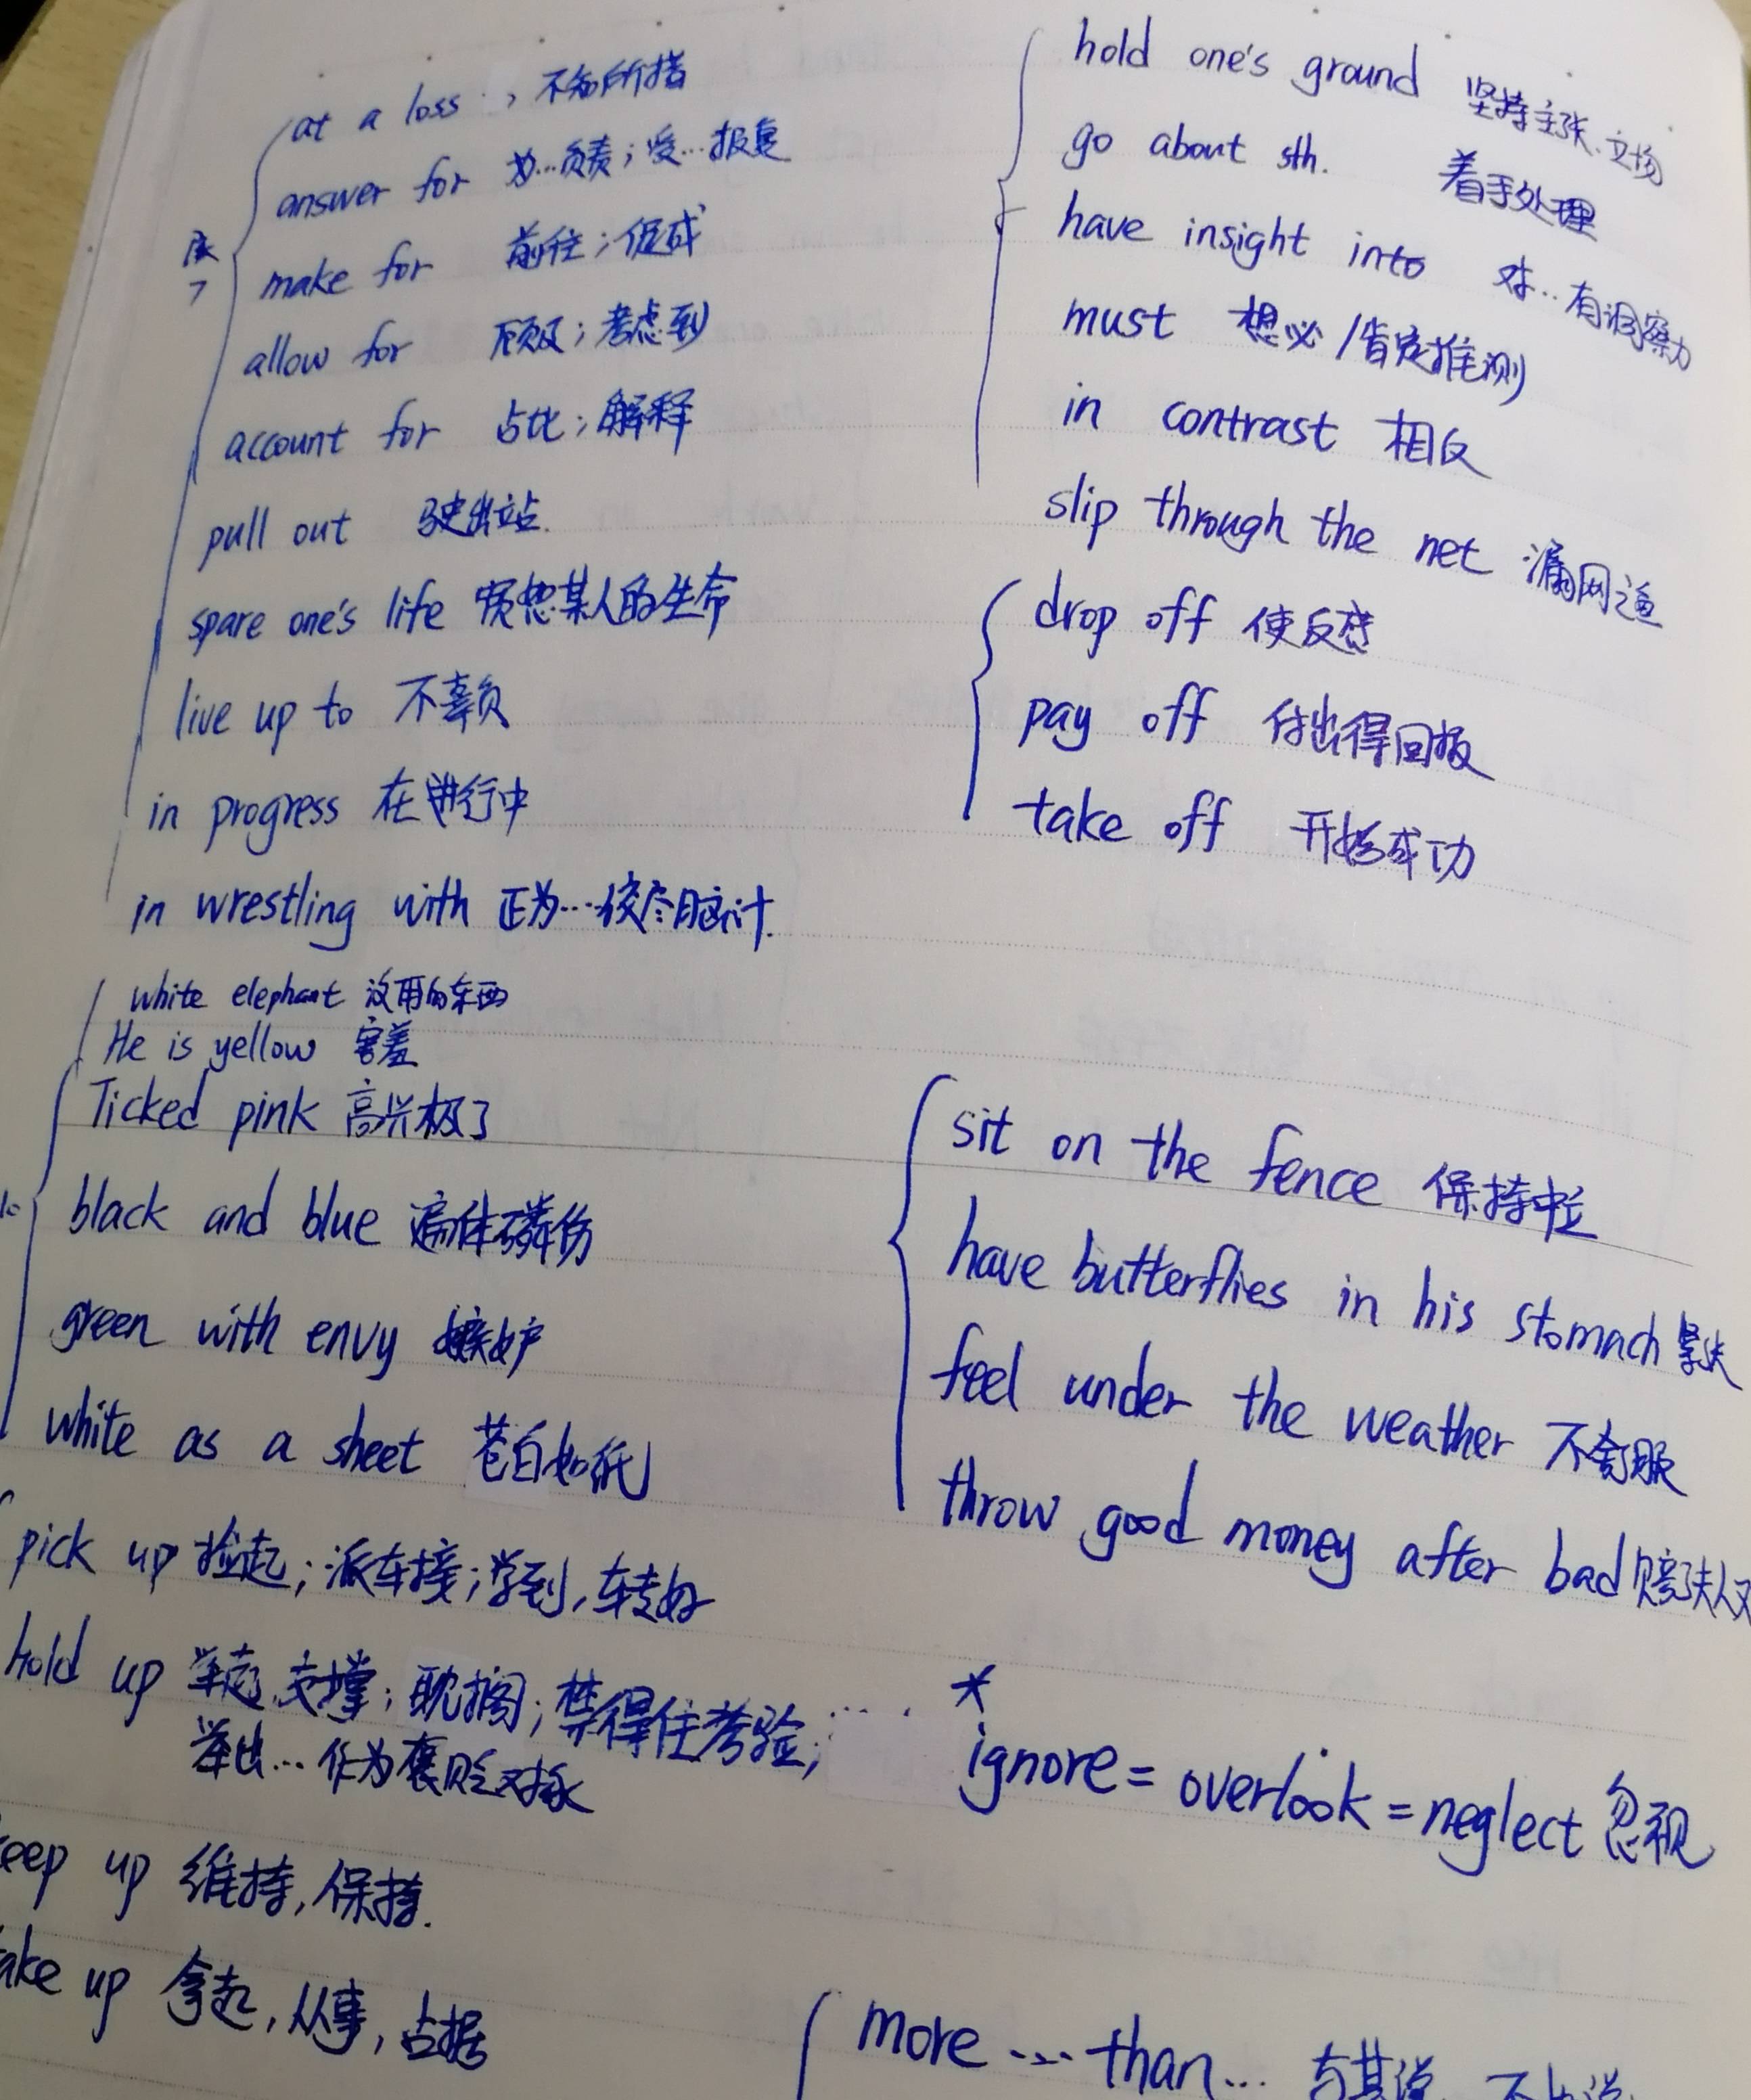 at a loss , 不知所措
answer for 为…负责;受…报复
make for 前往;促成
allow for 顾及;考虑到
account for 占比;解释
pull out 驶出站.
spare one's life 饶恕某人的生命
live up to 不辜负
in progress 在进行中
in wrestling with 正为…绞尽脑汁.
white elephant 没用的东西
He is yellow 害羞
Ticked pink 高兴极了
black and blue 遍体磷伤
green with envy 嫉妒
white as a sheet 苍白如纸
pick up 捡起;派车接;学到,车转好
hold up 举起,支撑;耽搁;禁得住考验;……
举出…作为褒贬对象
eep up 维持,保持.
ake up 拿起,从事,占据
hold one's ground 坚持主张、立场
go about sth. 着手处理
have insight into 对…有洞察力
must 想必/肯定推测
in contrast 相反
slip through the net 漏网之鱼
drop off 使反感
pay off 付出得回报
take off 开始成功
sit on the fence 保持中立
have butterflies in his stomach 紧张
feel under the weather 不舒服
throw good money after bad 赔了夫人又
*
ignore = overlook = neglect 忽视
more … than … 与其说 不如说